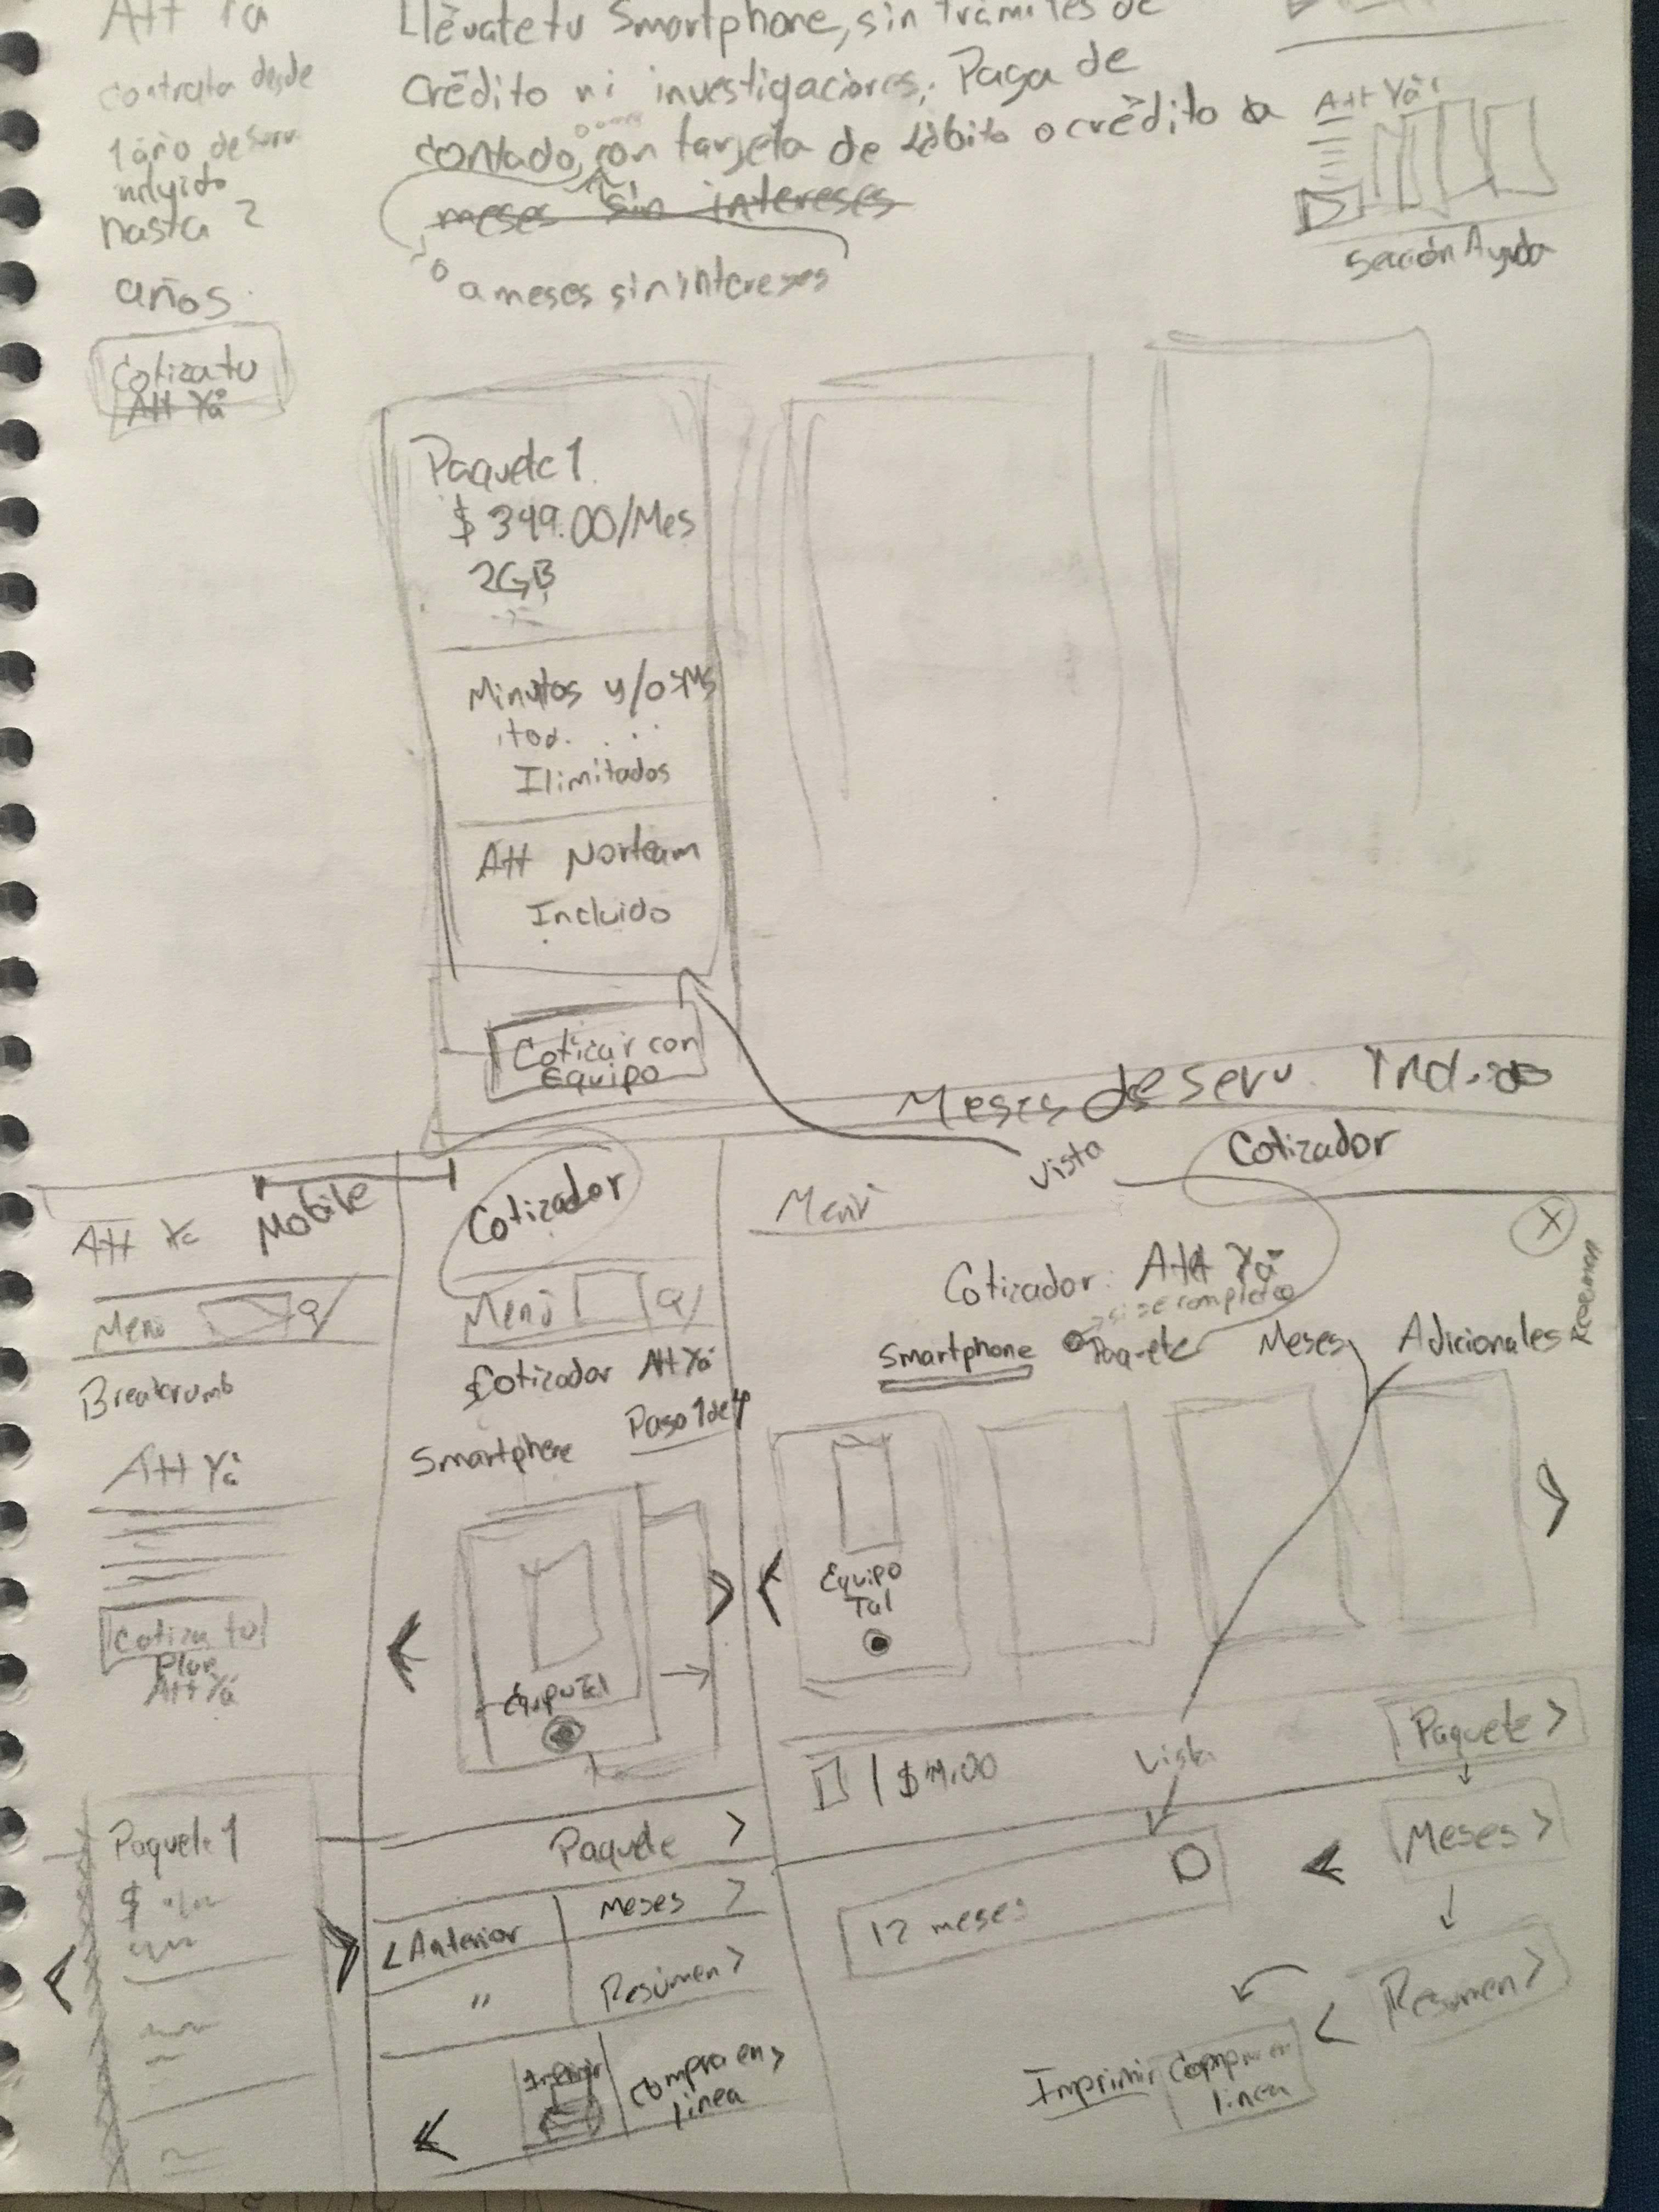 Att Ya
contrata desde
1 año de serv
incluido
hasta 2
años
Cotiza tu
Att Yá
Llévate tu Smartphone, sin trámites de
crédito ni investigaciones, Paga de
contado, con tarjeta de débito o crédito a
meses sin intereses
o a meses sin intereses
Att Yá
Sección Ayuda
Paquete 1
$ 349.00/Mes
2GB
Minutos y/o SMS
Ilimitados
Att Norteam
Incluido
Coticar con
Equipo
Meses de serv.
Vista
Cotizador
Mobile
Menú
Breadcrumb
Att Yá
Cotiza tu
Plan
Att Yá
Paquete 1
$
Cotizador
Menú
Cotizador Att Yá
Paso 1 de 4
Smartphone
Equipo Tal
Paquete >
Meses >
< Anterior
"
Resumen >
Imprimir
Compra en >
línea
Menú
X
Cotizador: Att Yá
si se completó
Smartphone
Paquete
Meses
Adicionales
Resumen
Equipo
Tal
Vista
Paquete >
Meses >
12 meses
Resumen >
Imprimir
Compra en
línea